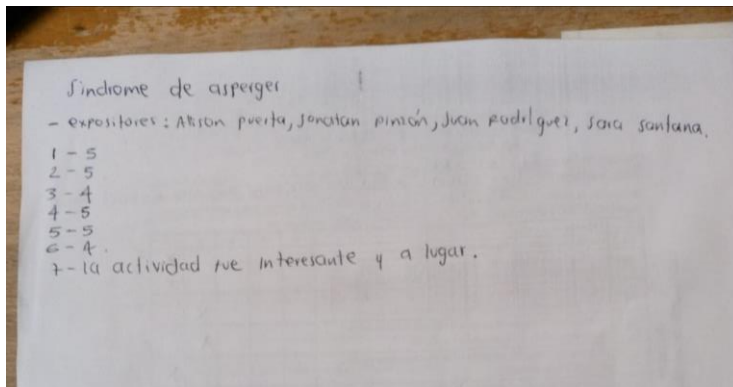 Sindrome de asperger
- expositores: Alison puerta, Jonatan pinzón, Juan Rodriguez, Sara santana.
1 - 5
2 - 5
3 - 4
4 - 5
5 - 5
6 - 4.
7 - la actividad fue interesante y a lugar.